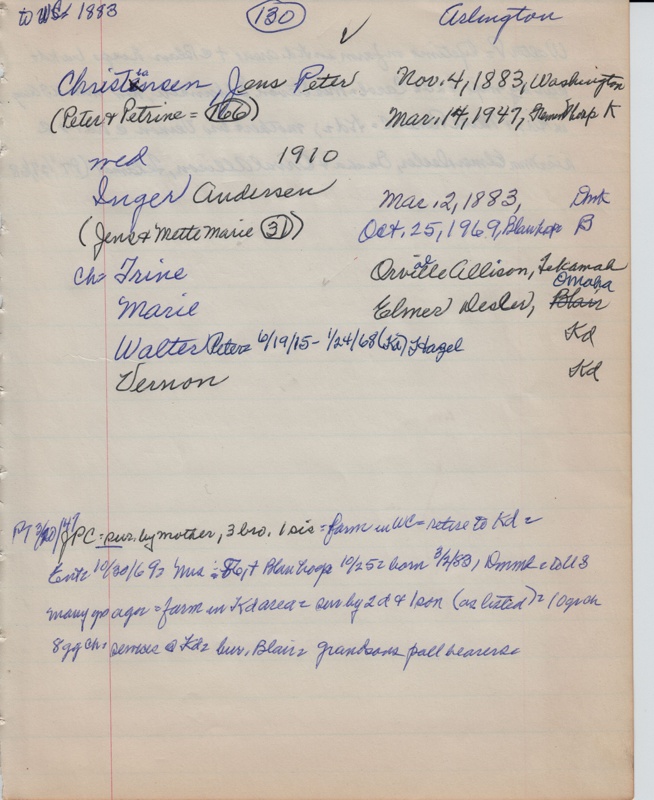 to US 1883 (130) Arlington
✓
Christensen, Jens Peter Nov. 4, 1883, Washington
(Peter & Petrine = (166)) Mar. 14, 1947, K
med 1910
Inger Andersen Mar. 2, 1883, Dmk
(Jens & Mette Marie (31)) Oct. 25, 1969, Blair hosp B
ch = Trine Orville Allison, Tekamah
Omaha
Marie Elmer Desler, Blair
Walter Peter = 6/19/15 - 1/24/68 (Kd) Hazel Kd
Vernon Kd
PT 3/20/47 JPC = sur. by mother, 3 bro. 1 sis = farm in WC = retire to Kd =
Ent = 10/30/69 = Mrs = 86, + Blair hosp 10/25 = born 3/2/83, Dnmk = to US
many yrs ago = farm in Kd area = sur by 2 d & 1 son (as listed) = 10 gr ch
8 gg ch. service @ Kd = bur. Blair = grandsons pall bearers =